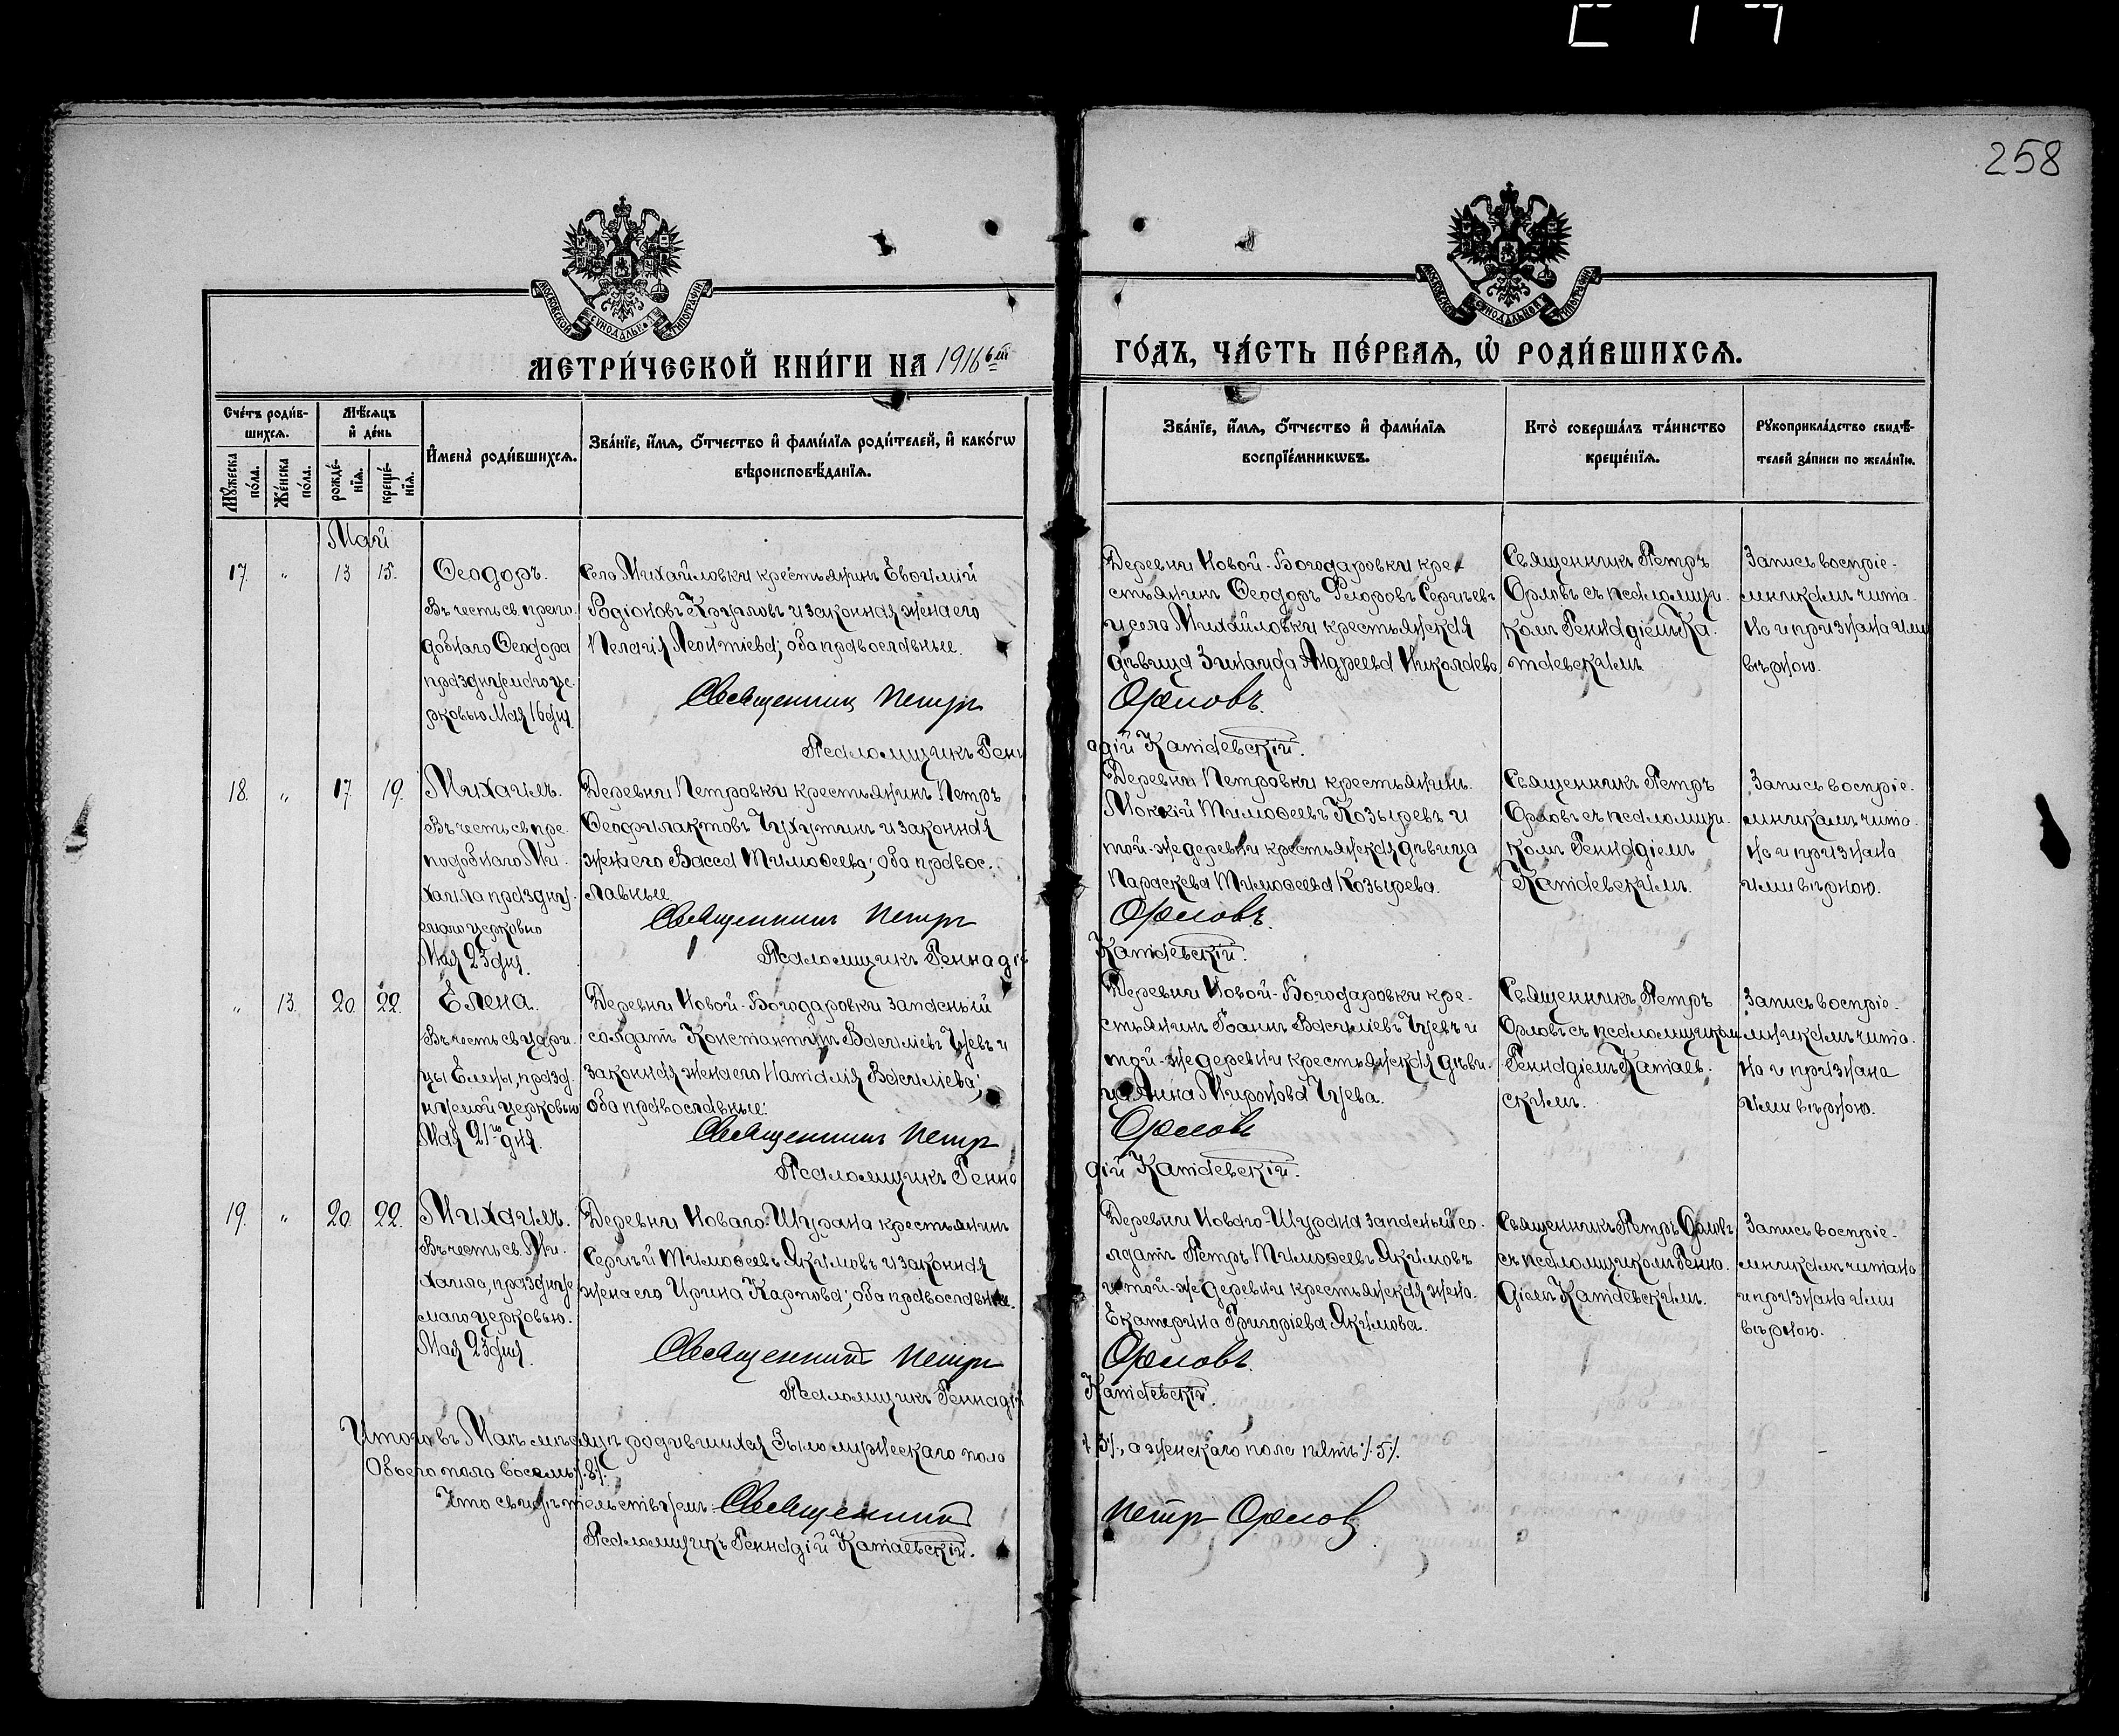 258
МЕТРИ́ЧЕСКОЙ КНИ́ГИ НА 1916 го
ГО́ДЪ, ЧА́СТЬ ПЕ́РВАЯ, Ѡ РОДИ́ВШИХСЯ.
Сче́тъ роди́в-
шихся.
Мѣ́сяцъ
и҆ де́нь
Мꙋ́жеска
по́ла.
Же́нска
по́ла.
рожде́-
нїя.
креще́-
нїя.
И҆мена̀ роди́вшихся.
Зва́нїе, и҆́мя, ѻ҆́тчество и҆ фами́лїя роди́телей, и҆ како́гѡ
вѣроисповѣ́данїя.
Зва́нїе, и҆́мя, ѻ҆́тчество и҆ фами́лїя
воспрїе́мникѡвъ.
Кто̀ соверша́лъ та́инство
креще́нїя.
Рꙋкоприкла́дство свидѣ́-
телей за́писи по жела́нїю.
Май
17. " 13 15. Ѳеодоръ.
Въ честь св. препо-
добнаго Ѳеодора
празднуемаго це-
рковью Мая 16 дня.
Села Михайловки крестьянинъ Евѳимій
Родіоновъ Кругловъ и законная жена его
Пелагія Леонтіева; оба православные.
Священникъ Петръ
Псаломщикъ Генн
Деревни Новой-Богодаровки кре-
стьянинъ Ѳеодоръ Сергѣевъ
и села Михайловки крестьянская
дѣвица Зинаида Андреева Николаева
Орловъ.
адій Катаевскій.
Священникъ Петръ
Орловъ съ псаломщи-
комъ Геннадіемъ Ка-
таевскимъ
Запись воспріе-
мникамъ чита-
но и признана ими
вѣрною.
18. " 17 19. Михаилъ.
Въ честь св. пре-
подобнаго Ми-
хаила праздну-
емаго церковью
Мая 23 дня.
Деревни Петровки крестьянинъ Петръ
Ѳеофилактовъ Чухутинъ и законная
жена его Васса Тимоѳеева; оба правос-
лавные.
Священникъ Петръ
Псаломщикъ Геннадій
Деревни Петровки крестьянинъ
Мокій Тимоѳеевъ Козыревъ и
той-же деревни крестьянская дѣвица
Параскева Тимоѳеева Козырева.
Орловъ.
Катаевскій.
Священникъ Петръ
Орловъ съ псаломщи-
комъ Геннадіемъ
Катаевскимъ.
Запись воспріе-
мникамъ чита-
но и признана
ими вѣрною.
" 13. 20. 22. Елена.
Въ честь св. цари-
цы Елены, празд-
нуемой церковью
Мая 21го дня.
Деревни Новой-Богодаровки запасный
солдатъ Константинъ Васильевъ и
законная жена его Наталія Васильева;
оба православные.
Священникъ Петръ
Псаломщикъ Генна
Деревни Новой-Богодаровки кре-
стьянинъ Іоаннъ Васильевъ и
той-же деревни крестьянская дѣви-
ца Анна Миронова
Орловъ
дій Катаевскій.
Священникъ Петръ
Орловъ съ псаломщикомъ
Геннадіемъ Катаев-
скимъ.
Запись воспріе-
мникамъ чита-
но и признана
ими вѣрною.
19. " 20. 22. Михаилъ.
Въ честь св. Ми-
хаила, праздну-
емаго церковью.
Мая 23 дня.
Деревни Новаго-Шурана крестьянинъ
Сергѣй Тимоѳеевъ Якимовъ и законная
жена его Ирина Карпова; оба православные.
Священникъ Петръ
Псаломщикъ Геннадій
Деревни Новаго-Шурана запасный со-
лдатъ Петръ Тимоѳеевъ Якимовъ
и той-же деревни крестьянская жена
Екатерина Григоріева Якимова.
Орловъ.
Катаевскій.
Священникъ Петръ Орловъ
съ псаломщикомъ Генна-
діемъ Катаевскимъ.
Запись воспріе-
мникамъ читано
и признано ими
вѣрною.
Итого въ Маѣ мѣсяцѣ родившихся было мужескаго пола
3 ⁒, а женскаго пола пять ⁒ 5 ⁒.
Обоего пола восемь ⁒ 8 ⁒.
Что свидѣтельствуемъ: Священникъ
Петръ Орловъ
Псаломщикъ Геннадій Катаевскій.